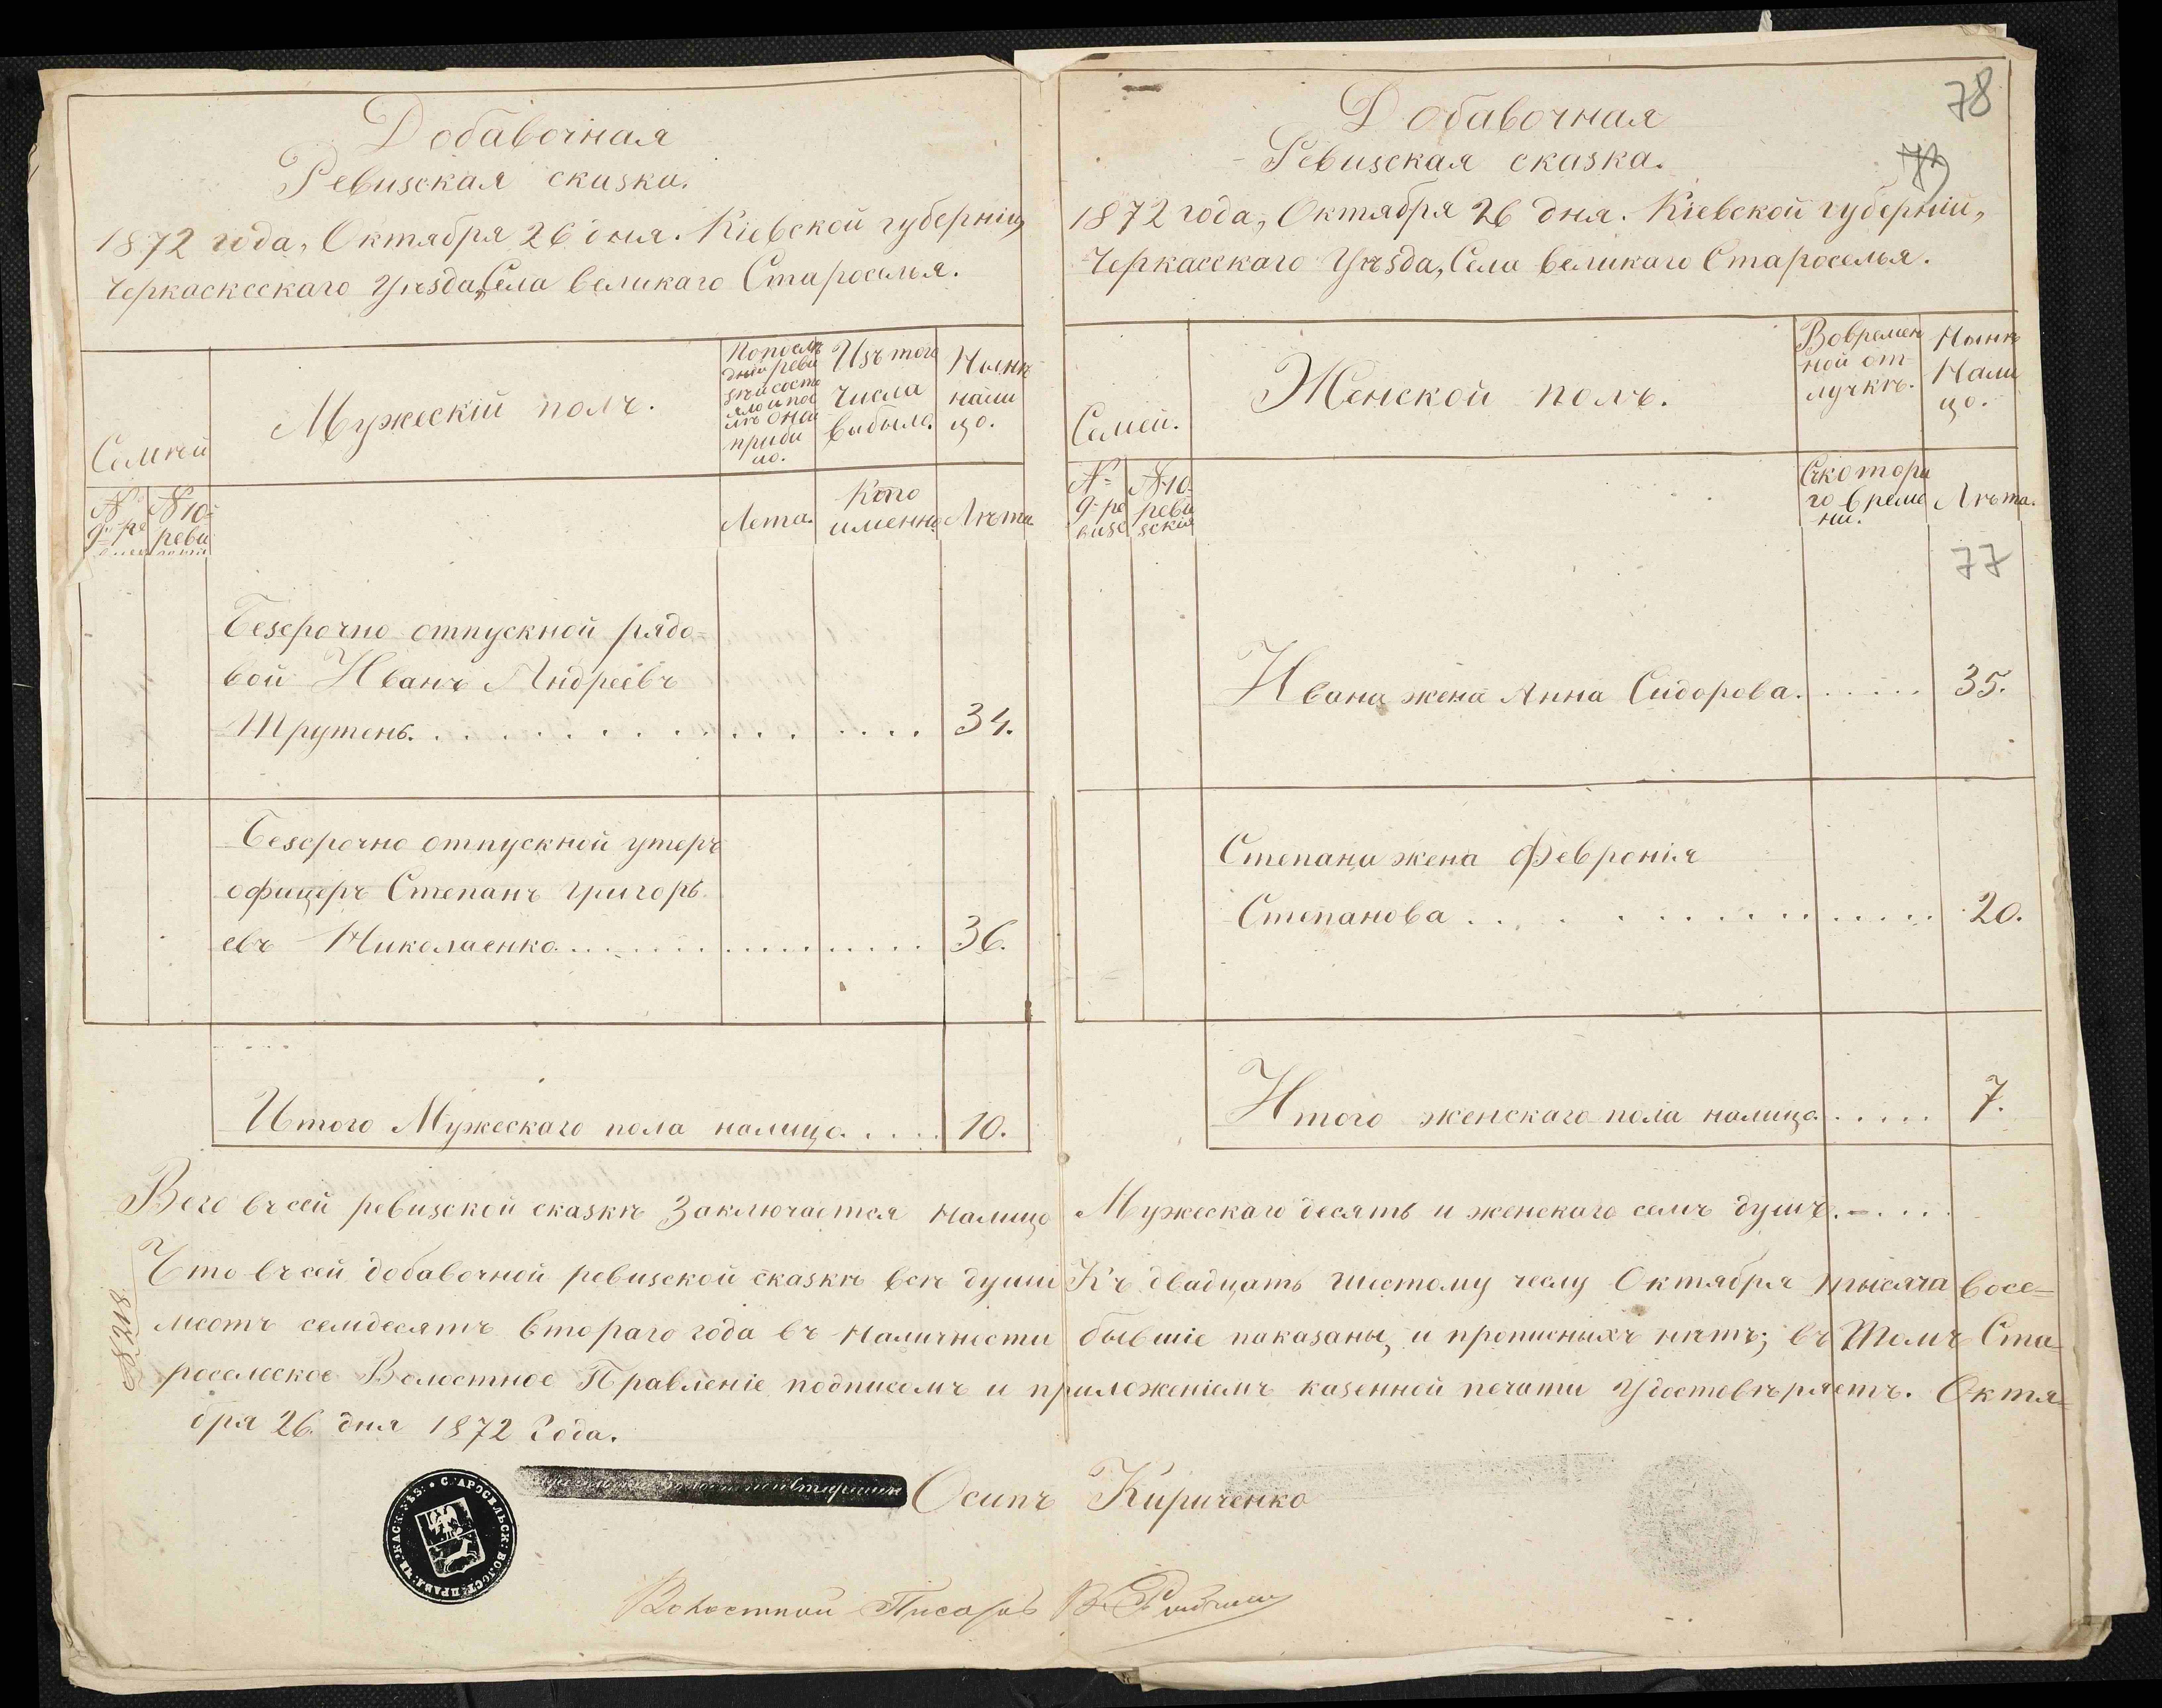 Добавочная
Ревизская сказка.
1872 года, Октября 26 дня. Кіевской губерніи,
Черкасксскаго Уѣзда, Села великаго Староселья.
Семѣй
Мужескій полъ.
Изъ того
числа
выбыло.
Нынѣ
нали
цо.
№
9й ре
№ 10й
реви
Лета.
Кто
именно.
Лѣта
Безсрочно отпускной рядо-
вой Иванъ Андреевъ
Трутень. 34.
Безсрочно отпускной унтеръ
офицеръ Степанъ Григорь
евъ Николаенко. 36.
Итого Мужескаго пола налицо. 10.
78
Добавочная
Ревизская сказка.
1872 года, Октября 26 дня. Кіевской губерніи,
Черкасскаго Уѣзда, Села великаго Староселья.
Семей.
Женской полъ.
Вовремен
ной от-
лучкѣ.
Нынѣ
Нали
цо.
№
9й ре
визс
№ 10
реви
зскія
Съкотора
го време
ни.
Лѣта.
77
Ивана жена Анна Сидорова. 35.
Степана жена Февронія
Степанова 20.
Итого женскаго пола налицо 7.
Всего въ сей ревизской сказкѣ Заключается Налицо Мужескаго десять и женскаго семъ душъ.
Что въ сей добавочной ревизской сказкѣ всѣ души Къ двадцать шестому числу Октября тысяча восе-
мсотъ семдесятъ втораго года въ Наличности бывшіе показаны, и прописныхъ нѣтъ; въ Томъ Ста-
росельское Волостное Правленіе подписомъ и приложеніемъ казенной печати Удостовѣряетъ. Октя-
бря 26 дня 1872 Года.
Осипъ Кириченко
Волостной Писарь